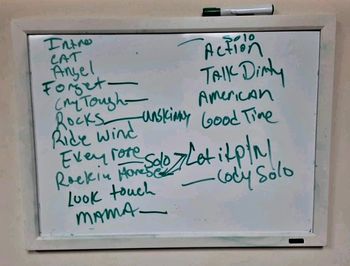 Intro
CAT
Angel
Forget
Cry Tough
Rocks unskinny
Ride Wind
Every rose Solo
Rockin Horse
Look touch
MAMA
Solo
Action
Talk Dirty
American
Good Time
Let it play
Cody Solo